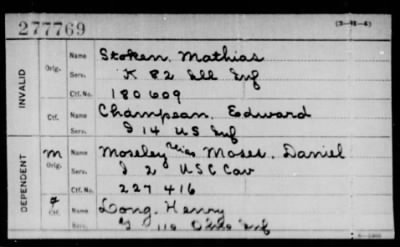 277769
(3-98-6)
INVALID
Orig.
Name Stoken, Mathias
Serv. K 82 Ill Inf
Ctf. No. 180609
Ctf.
Name Champean, Edward
Serv. I 14 US Inf
DEPENDENT
M
Orig.
Name Moseley alias Moses, Daniel
Serv. I 2 USC Cav
Ctf. No. 227416
Ctf.
Name Long, Henry
Serv. 110 Ohio Inf